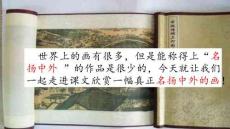 世界上的画有很多，但是能称得上“名
扬中外 ”的作品是很少的，今天就让我们
一起走进课文欣赏一幅真正名扬中外的画。